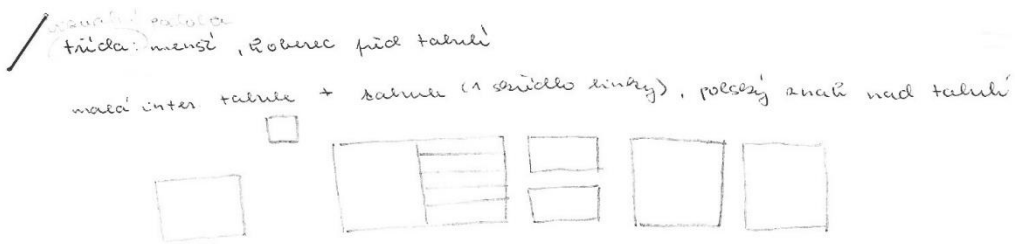 třída: menší, koberec před tabulí
malá inter tabule + tabule (1 křídlo linky), polský znak nad tabulí